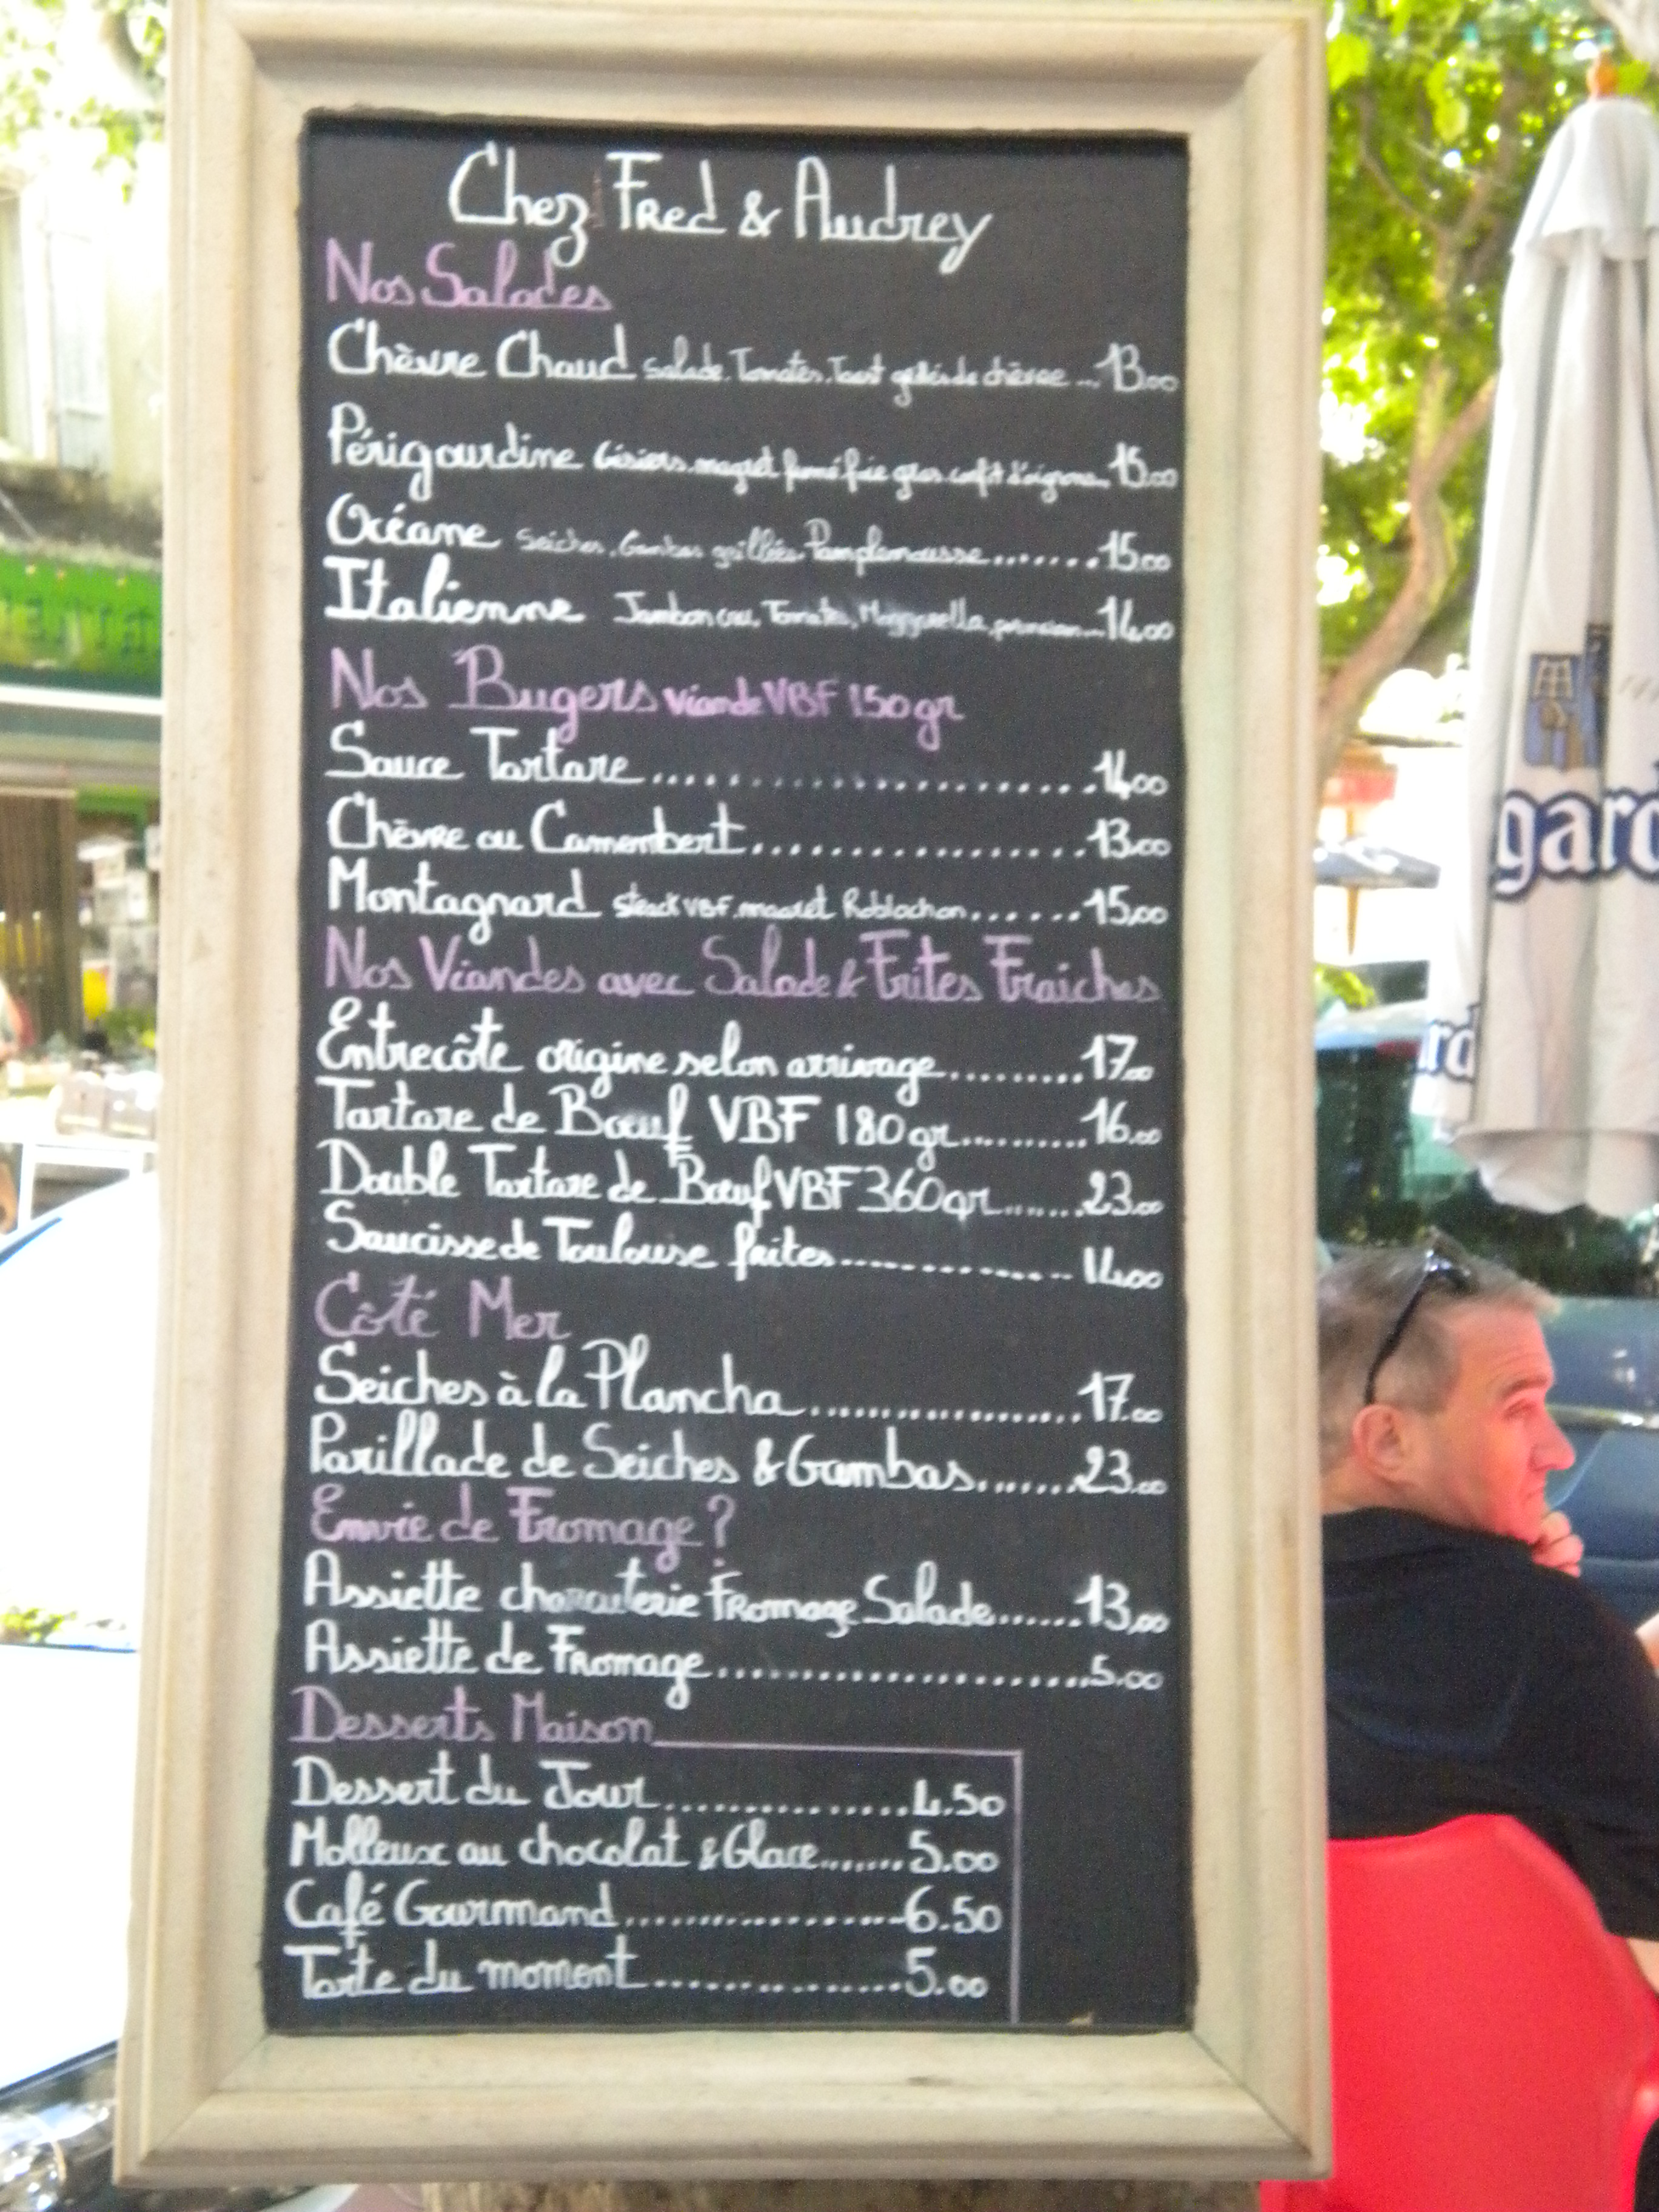 Chez Fred & Audrey
Nos Salades
Chèvre Chaud Salade. Tomates. Toast de chèvre ...13.00
Périgourdine Gisiers. magret fumé foie gras confit d'oignons..15.00
Océane Seiches. Gambas grillées Pamplemousse........15.00
Italienne Jambon cru, Tomates, Mozzarella, ...14.00
Nos Bugers viande VBF 150gr
Sauce Tartare........................14.00
Chèvre ou Camembert..................13.00
Montagnard Steack VBF. magret Roblochon.......15.00
Nos Viandes avec Salade & Frites Fraiches
Entrecôte origine selon arrivage.........17.00
Tartare de Bœuf VBF 180gr..........16.00
Double Tartare de Bœuf VBF 360gr.......23.00
Saucisse de Toulouse frites..............14.00
Côté Mer
Seiches à la Plancha....................17.00
Parillade de Seiches & Gambas.......23.00
Envie de Fromage ?
Assiette Fromage Salade.......13.00
Assiette de Fromage.......................5.00
Desserts Maison
Dessert du Jour................4.50
Molleux au chocolat & Glace........5.00
Café Gourmand...................6.50
Tarte du moment................5.00
gard
rd